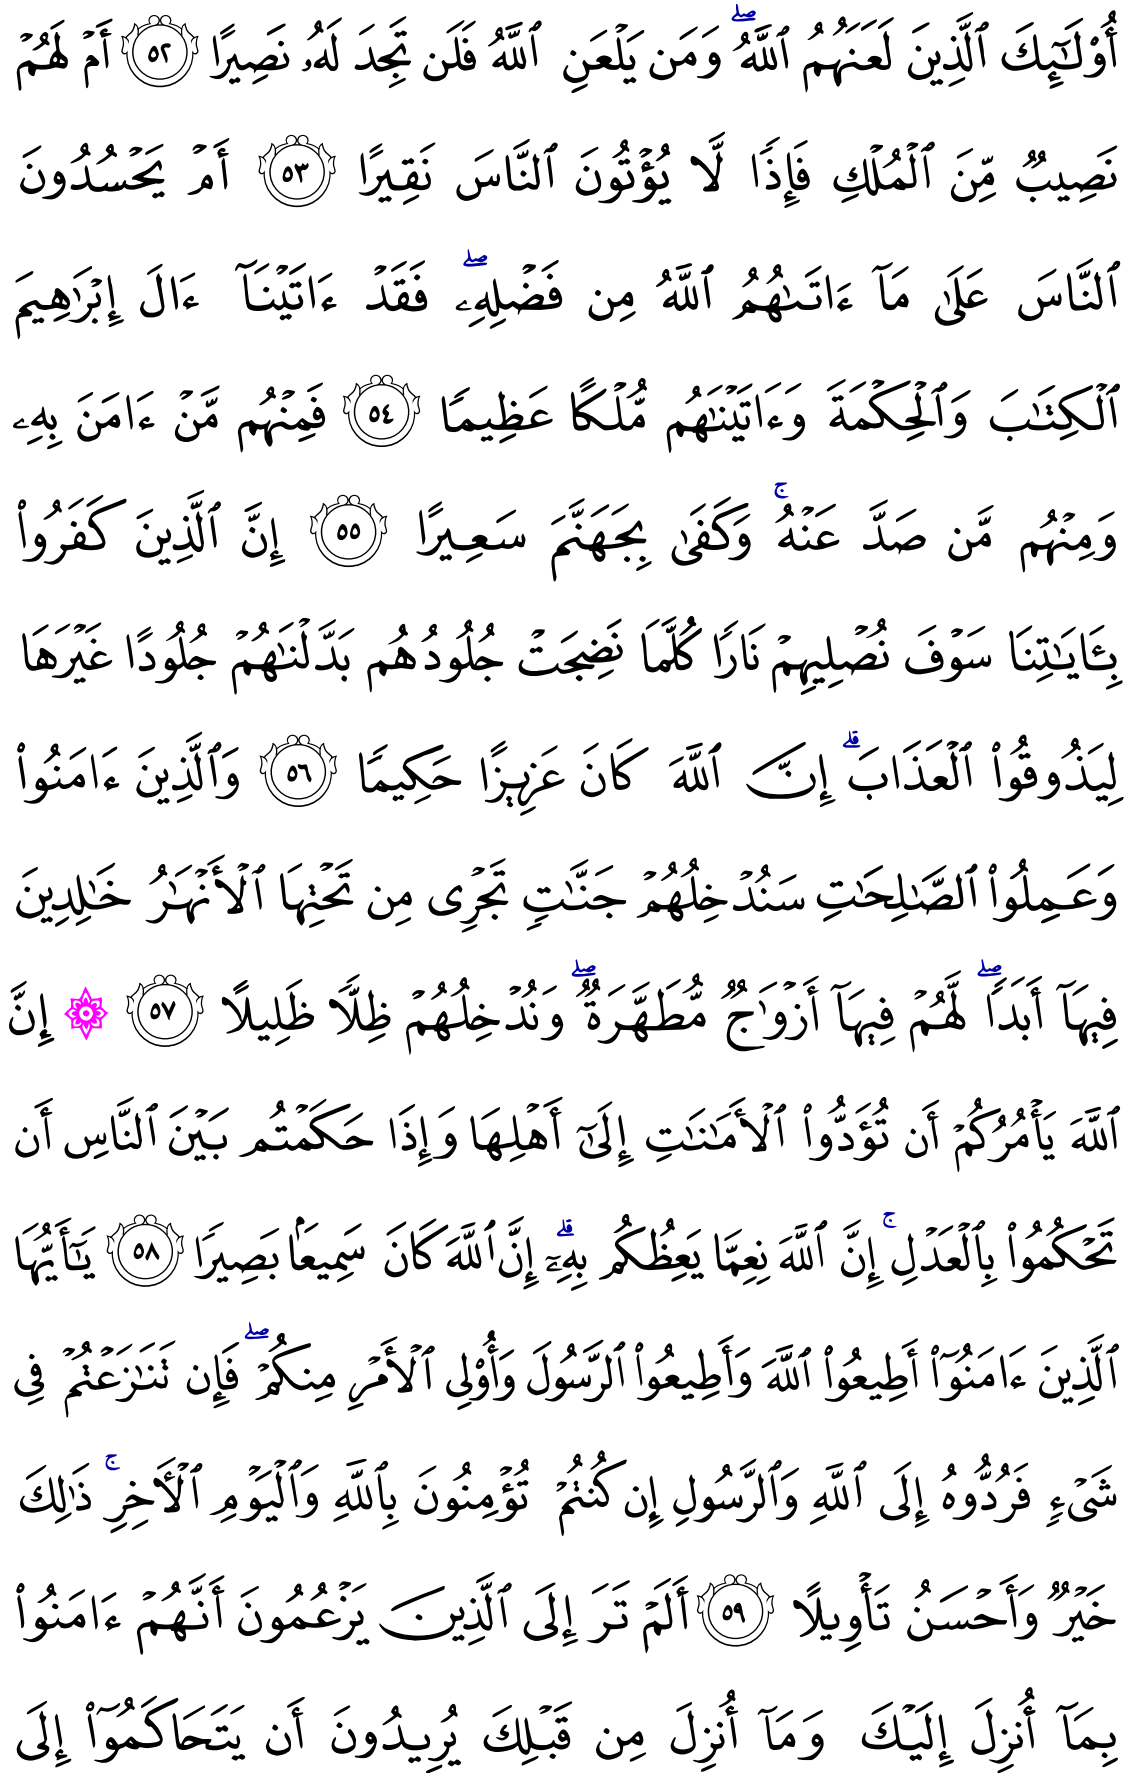 أُوْلَٰٓئِكَ ٱلَّذِينَ لَعَنَهُمُ ٱللَّهُۖ وَمَن يَلۡعَنِ ٱللَّهُ فَلَن تَجِدَ لَهُۥ نَصِيرًا ٥٢ أَمۡ لَهُمۡ
نَصِيبٌ مِّنَ ٱلۡمُلۡكِ فَإِذٗا لَّا يُؤۡتُونَ ٱلنَّاسَ نَقِيرًا ٥٣ أَمۡ يَحۡسُدُونَ
ٱلنَّاسَ عَلَىٰ مَآ ءَاتَىٰهُمُ ٱللَّهُ مِن فَضۡلِهِۦۖ فَقَدۡ ءَاتَيۡنَآ ءَالَ إِبۡرَٰهِيمَ
ٱلۡكِتَٰبَ وَٱلۡحِكۡمَةَ وَءَاتَيۡنَٰهُم مُّلۡكًا عَظِيمًا ٥٤ فَمِنۡهُم مَّنۡ ءَامَنَ بِهِۦ
وَمِنۡهُم مَّن صَدَّ عَنۡهُۚ وَكَفَىٰ بِجَهَنَّمَ سَعِيرًا ٥٥ إِنَّ ٱلَّذِينَ كَفَرُواْ
بِـَٔايَٰتِنَا سَوۡفَ نُصۡلِيهِمۡ نَارٗا كُلَّمَا نَضِجَتۡ جُلُودُهُم بَدَّلۡنَٰهُمۡ جُلُودًا غَيۡرَهَا
لِيَذُوقُواْ ٱلۡعَذَابَۗ إِنَّ ٱللَّهَ كَانَ عَزِيزًا حَكِيمٗا ٥٦ وَٱلَّذِينَ ءَامَنُواْ
وَعَمِلُواْ ٱلصَّٰلِحَٰتِ سَنُدۡخِلُهُمۡ جَنَّٰتٖ تَجۡرِي مِن تَحۡتِهَا ٱلۡأَنۡهَٰرُ خَٰلِدِينَ
فِيهَآ أَبَدٗاۖ لَّهُمۡ فِيهَآ أَزۡوَٰجٞ مُّطَهَّرَةٞۖ وَنُدۡخِلُهُمۡ ظِلّٗا ظَلِيلًا ٥٧ ۞ إِنَّ
ٱللَّهَ يَأۡمُرُكُمۡ أَن تُؤَدُّواْ ٱلۡأَمَٰنَٰتِ إِلَىٰٓ أَهۡلِهَا وَإِذَا حَكَمۡتُم بَيۡنَ ٱلنَّاسِ أَن
تَحۡكُمُواْ بِٱلۡعَدۡلِۚ إِنَّ ٱللَّهَ نِعِمَّا يَعِظُكُم بِهِۦٓۗ إِنَّ ٱللَّهَ كَانَ سَمِيعَۢا بَصِيرٗا ٥٨ يَٰٓأَيُّهَا
ٱلَّذِينَ ءَامَنُوٓاْ أَطِيعُواْ ٱللَّهَ وَأَطِيعُواْ ٱلرَّسُولَ وَأُوْلِي ٱلۡأَمۡرِ مِنكُمۡۖ فَإِن تَنَٰزَعۡتُمۡ فِي
شَيۡءٖ فَرُدُّوهُ إِلَى ٱللَّهِ وَٱلرَّسُولِ إِن كُنتُمۡ تُؤۡمِنُونَ بِٱللَّهِ وَٱلۡيَوۡمِ ٱلۡأٓخِرِۚ ذَٰلِكَ
خَيۡرٞ وَأَحۡسَنُ تَأۡوِيلًا ٥٩ أَلَمۡ تَرَ إِلَى ٱلَّذِينَ يَزۡعُمُونَ أَنَّهُمۡ ءَامَنُواْ
بِمَآ أُنزِلَ إِلَيۡكَ وَمَآ أُنزِلَ مِن قَبۡلِكَ يُرِيدُونَ أَن يَتَحَاكَمُوٓاْ إِلَى